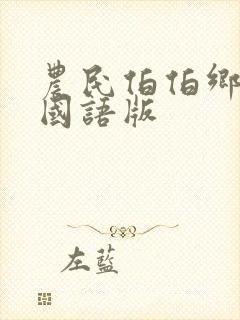 農民伯伯鄉
國語版
左藍